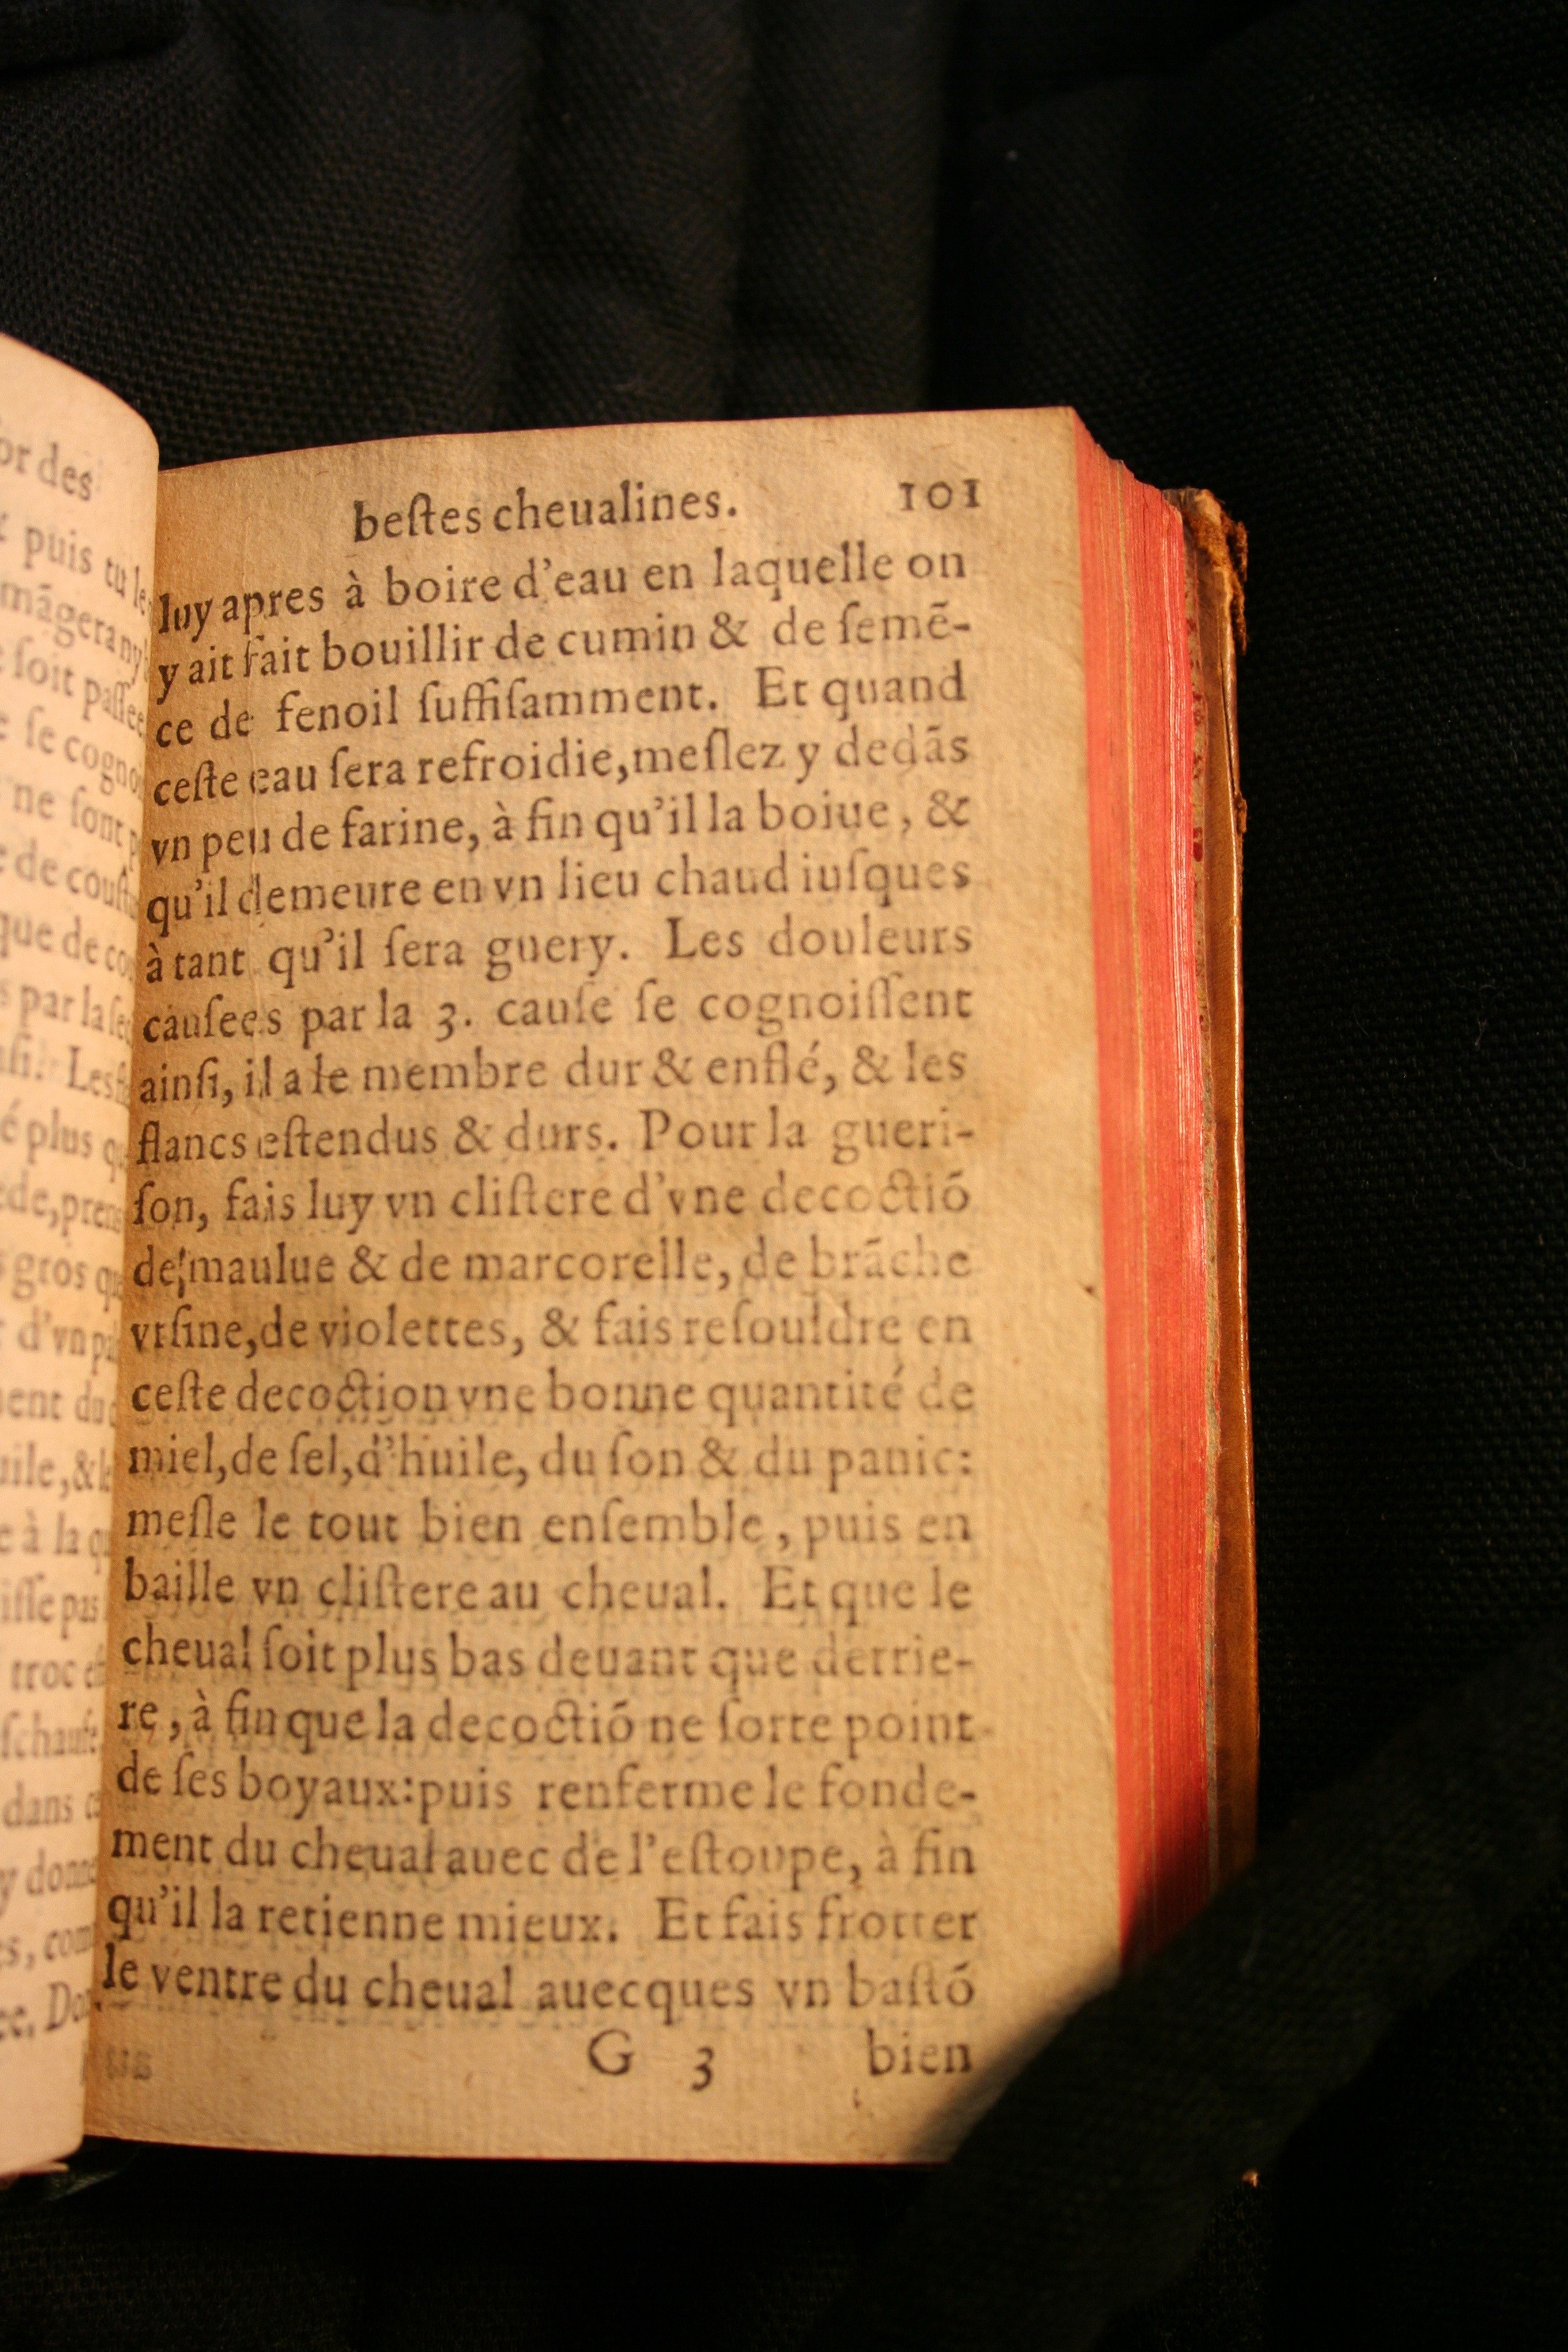 or des
puis tu le
mãgera ny
soit passee
se cogno
ne sont
de coust
que de co
par la se
Les
é plus q
de, pren
gros qu
d'vn pa
ent du
uile, & le
à la q
isse pas
troc
schauf
dans c
y donne
s, com
ee. Do
beſtes cheualines. 101
luy apres à boire d'eau en laquelle on
y ait fait bouillir de cumin & de ſemẽ-
ce de fenoil ſuffiſamment. Et quand
ceſte eau ſera refroidie, meſlez y dedãs
vn peu de farine, à fin qu'il la boiue, &
qu'il demeure en vn lieu chaud iuſques
à tant qu'il ſera guery. Les douleurs
cauſees par la 3. cauſe ſe cognoiſſent
ainſi, il a le membre dur & enflé, & les
flancs eſtendus & durs. Pour la gueri-
ſon, fais luy vn cliſtere d'vne decoctiõ
de maulue & de marcorelle, de brãche
vrſine, de violettes, & fais reſouldre en
ceſte decoction vne bonne quantité de
miel, de ſel, d'huile, du ſon & du panic:
meſle le tout bien enſemble, puis en
baille vn cliſtere au cheual. Et que le
cheual ſoit plus bas deuant que derrie-
re, à fin que la decoctiõ ne ſorte point
de ſes boyaux: puis renferme le fonde-
ment du cheual auec de l'eſtoupe, à fin
qu'il la retienne mieux. Et fais frotter
le ventre du cheual auecques vn baſtõ
G 3 bien